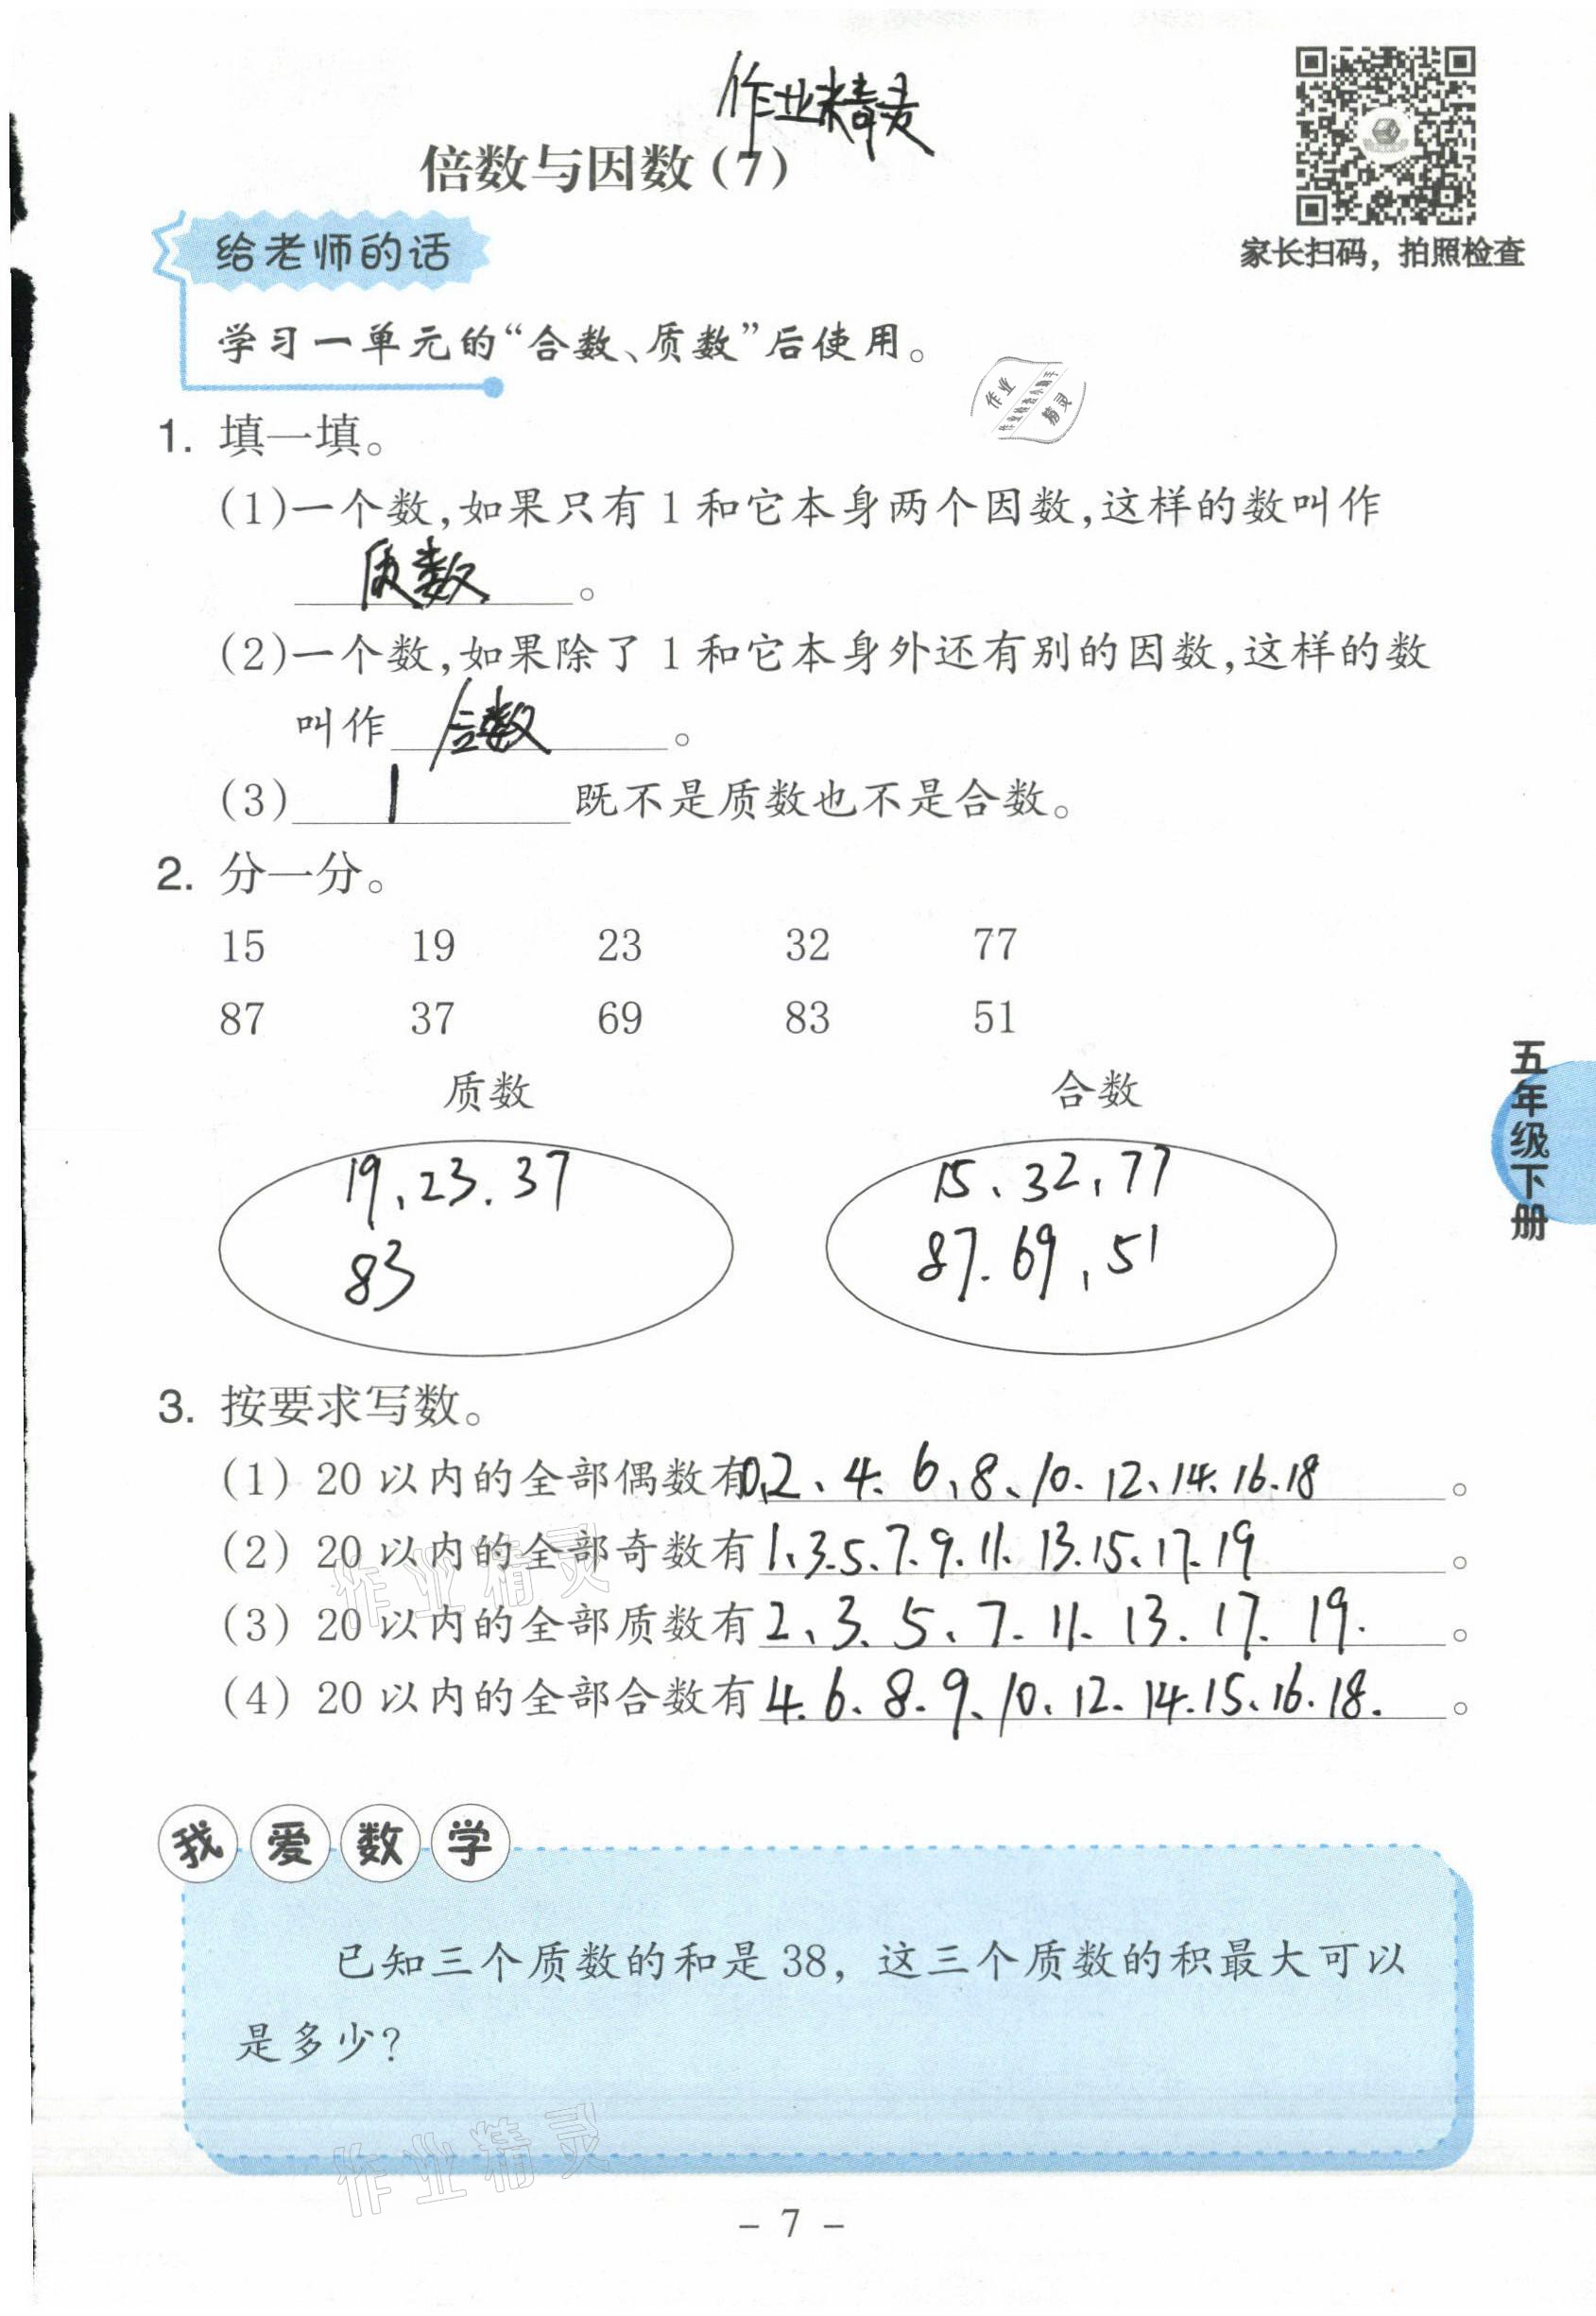 作业精灵
倍数与因数(7)
家长扫码，拍照检查
给老师的话
学习一单元的“合数、质数”后使用。
作业
作业检查小助手
精灵
1. 填一填。
(1)一个数,如果只有1和它本身两个因数,这样的数叫作
质数。
(2)一个数,如果除了1和它本身外还有别的因数,这样的数
叫作 合数。
(3) 1 既不是质数也不是合数。
2. 分一分。
15 19 23 32 77
87 37 69 83 51
质数 合数
19、23、37
83
15、32、77
87、69、51
五年级下册
3. 按要求写数。
(1) 20以内的全部偶数有0、2、4、6、8、10、12、14、16、18。
(2) 20以内的全部奇数有1、3、5、7、9、11、13、15、17、19。
(3) 20以内的全部质数有2、3、5、7、11、13、17、19.。
(4) 20以内的全部合数有4、6、8、9、10、12、14、15、16、18.。
作业精灵
我爱数学
已知三个质数的和是38，这三个质数的积最大可以
是多少?
作业精灵
- 7 -